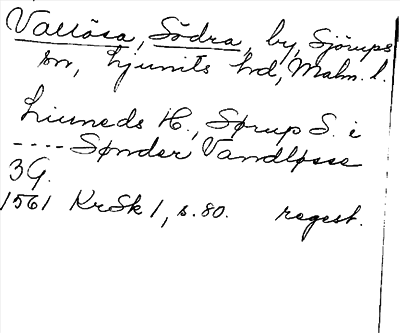 Vallösa, Södra, by, Sjörups
sn, Ljunits hd, Malm. l.
Liuneds H., Sørup S. i
---- Sønder Vandløsse
3 G.
1561 KrSk 1, s. 80. regest.